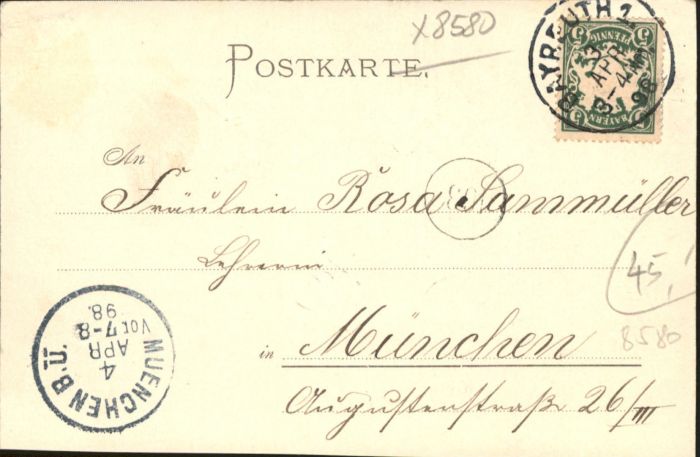 x8580
POSTKARTE.
BAYREUTH 1
3
APR
3-4 Nm
98
5 PFENNIG 5
BAYERN
An
Fräulein Rosa Sammüller
Lehrerin
in München
Augustenstraße 26/III
45,
8580
MUENCHEN B.II.
4
APR
Vor. 7-8
98.